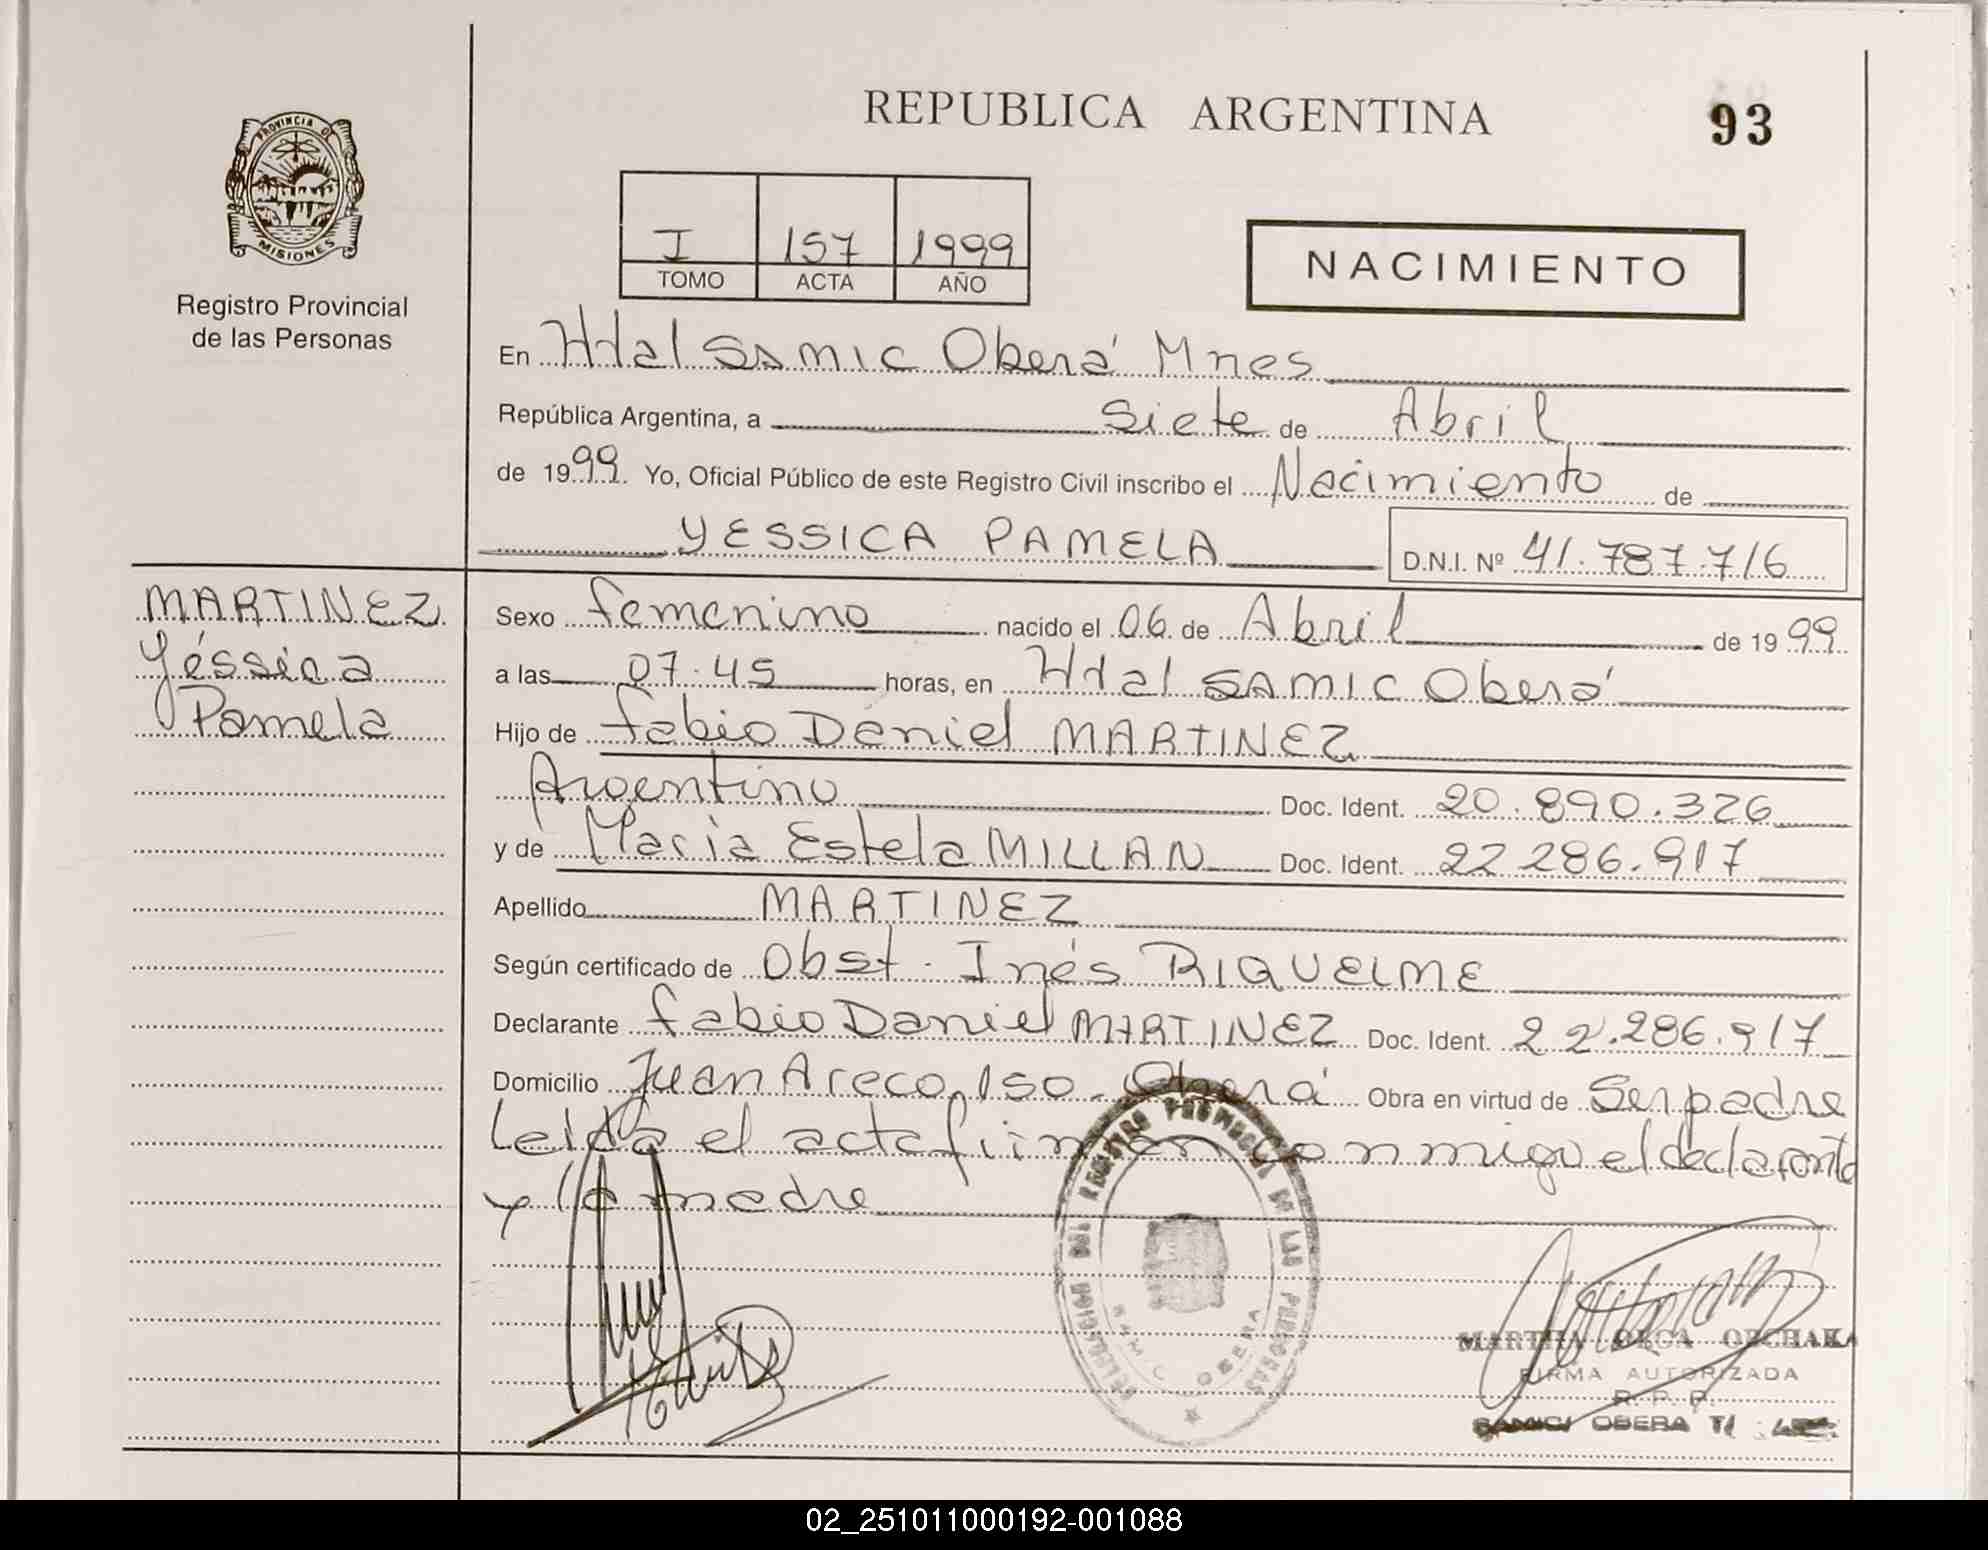 REPUBLICA ARGENTINA
93
PROVINCIA DE MISIONES
Registro Provincial
de las Personas
I 157 1999
TOMO ACTA AÑO
NACIMIENTO
En Htal SAMIC Oberá Mnes
República Argentina, a siete de Abril
de 1999 Yo, Oficial Público de este Registro Civil inscribo el Nacimiento de
YESSICA PAMELA D.N.I. Nº 41.787.716
MARTINEZ
Yéssica
Pamela
Sexo femenino nacido el 06 de Abril de 1999
a las 07.45 horas, en Htal SAMIC Oberá
Hijo de Fabio Daniel MARTINEZ
Argentino Doc. Ident. 20.890.326
y de Maria Estela MILLAN Doc. Ident. 22 286.917
Apellido MARTINEZ
Según certificado de Obst. Inés RIQUELME
Declarante Fabio Daniel MARTINEZ Doc. Ident. 22.286.917
Domicilio Juan Areco 150. Oberá Obra en virtud de Ser padre
Leida el acta firman conmigo el declarante
y la madre
REGISTRO PROVINCIAL DE LAS PERSONAS
SAMIC OBERA
MARTHA OLGA
FIRMA AUTORIZADA
R. P. P.
OBERA
02_251011000192-001088